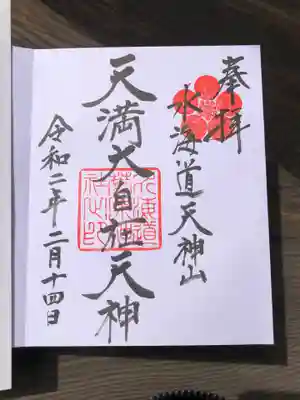 奉拝
水海道天神山
天満大自在天神
令和二年二月十四日